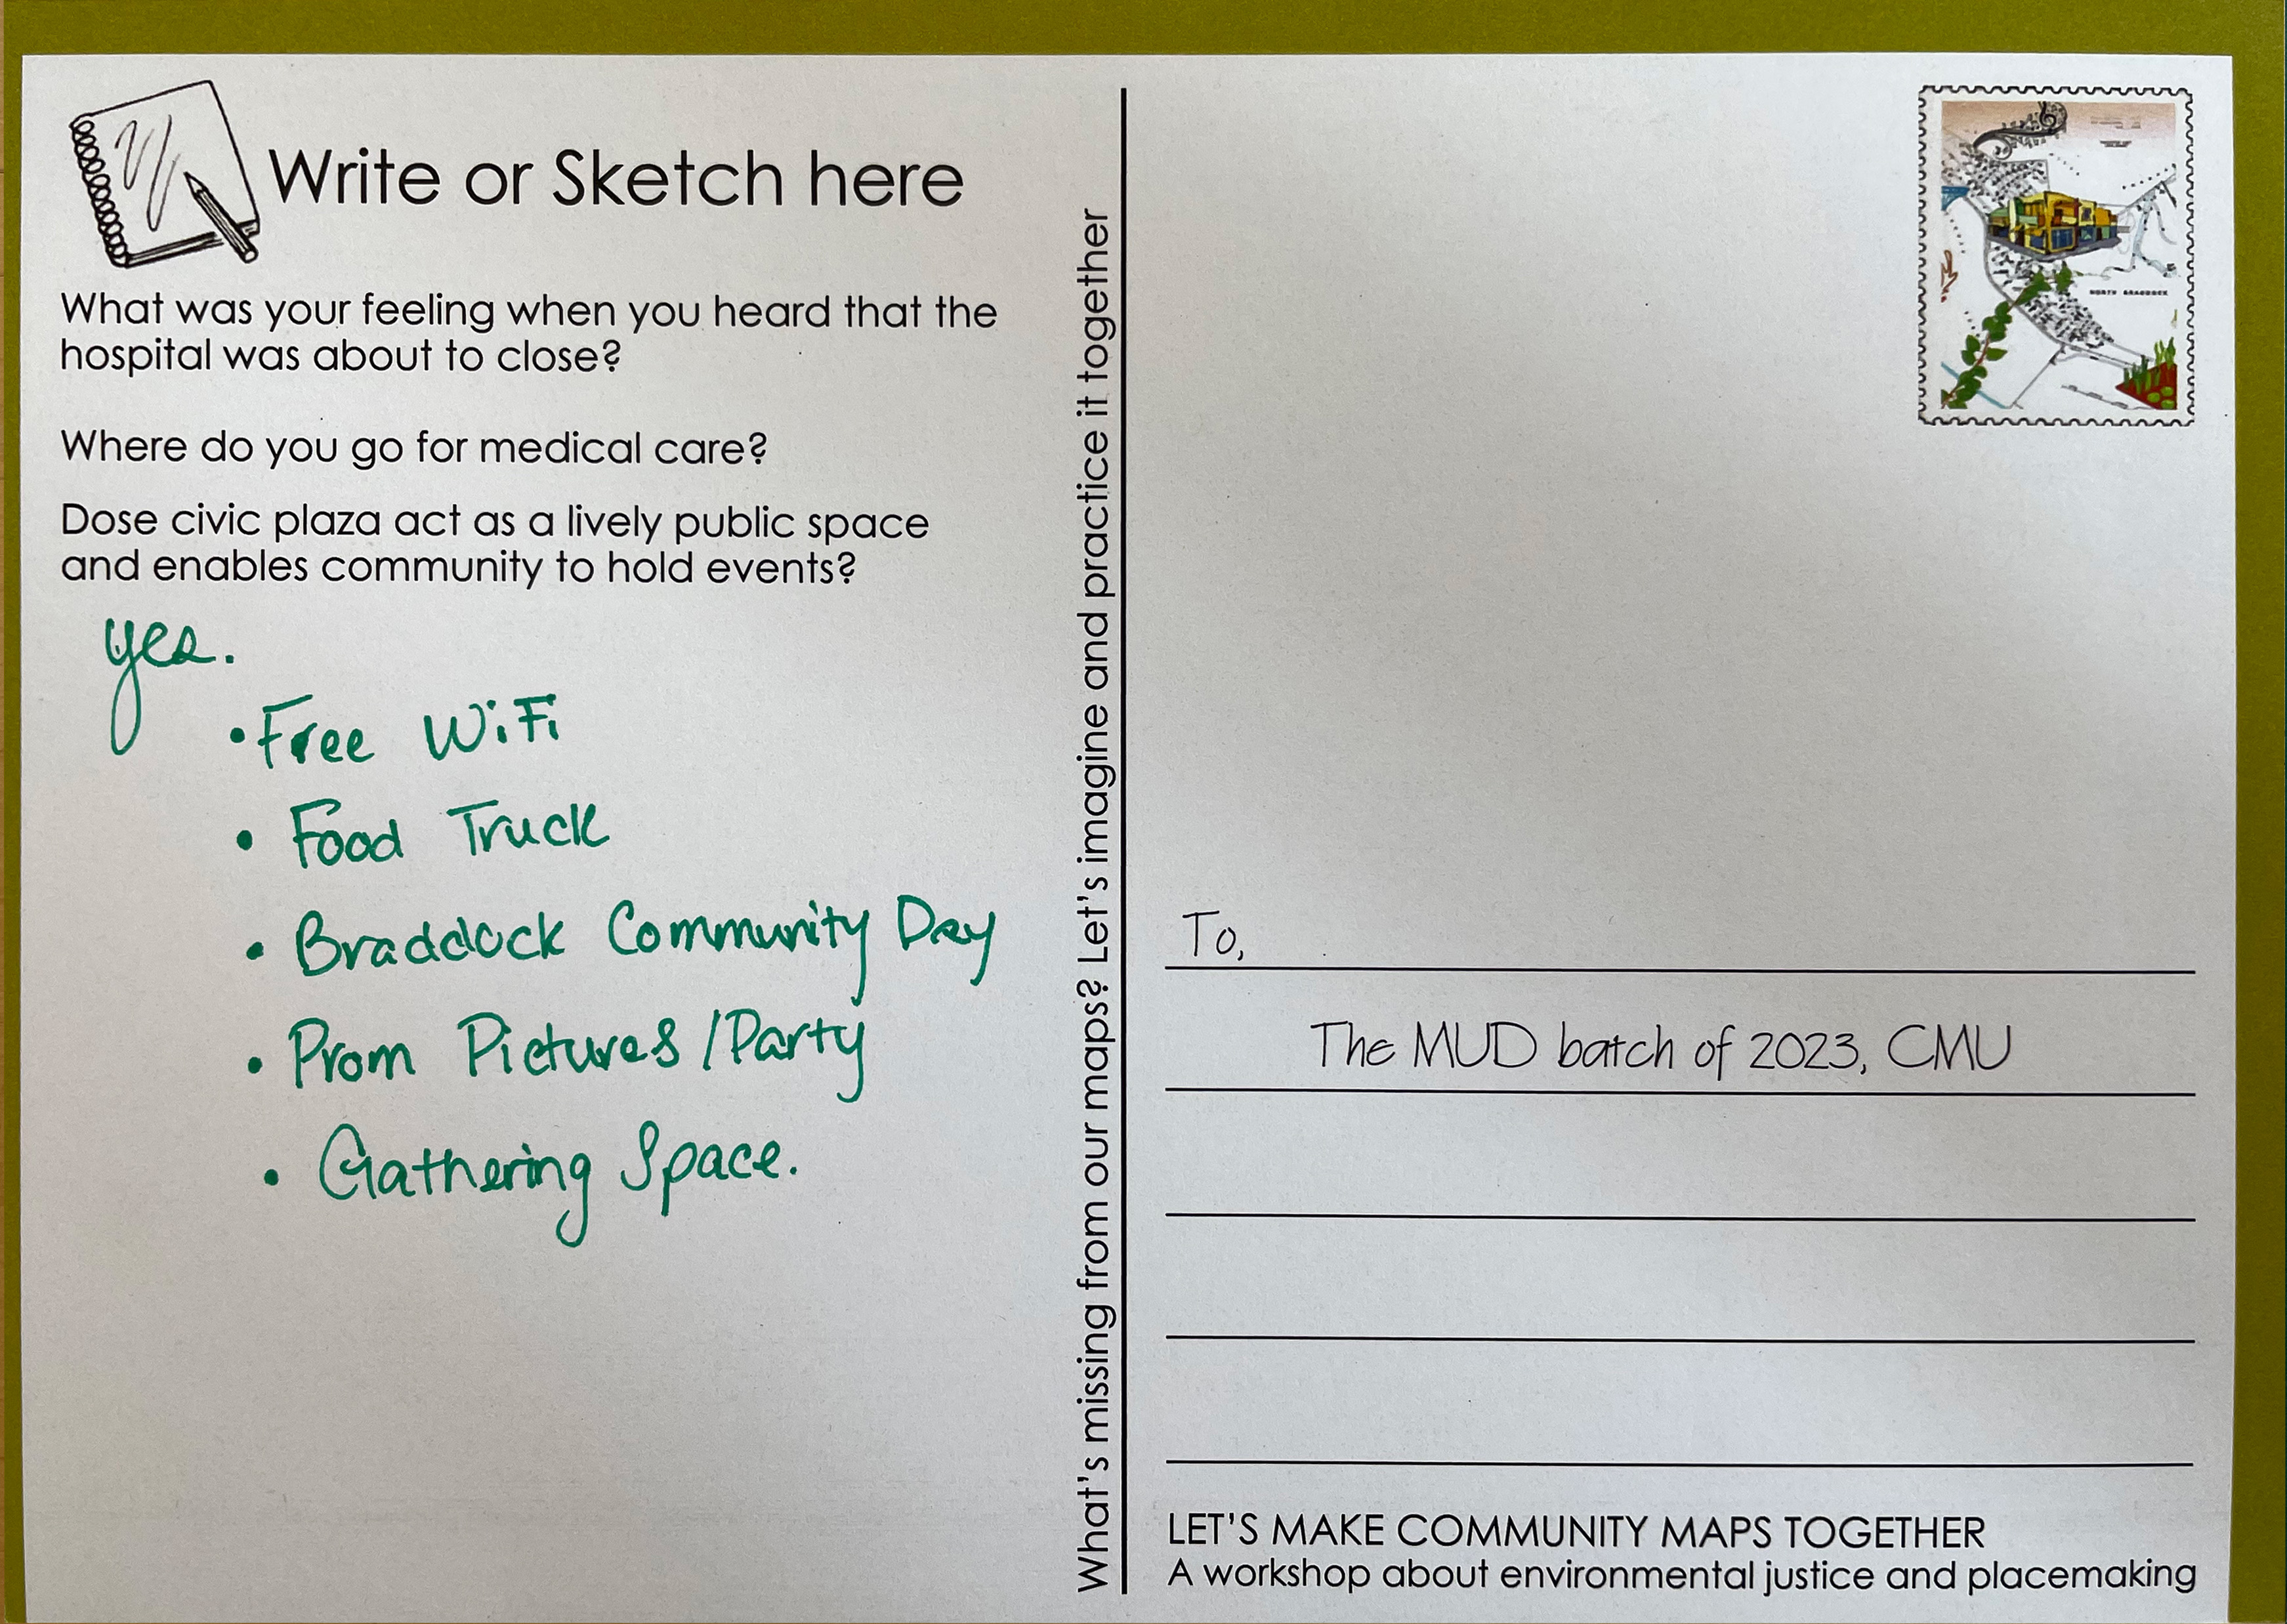 Write or Sketch here
What was your feeling when you heard that the
hospital was about to close?
Where do you go for medical care?
Dose civic plaza act as a lively public space
and enables community to hold events?
yes.
• Free WiFi
• Food Truck
• Braddock Community Day
• Prom Pictures / Party
• Gathering Space.
What's missing from our maps? Let's imagine and practice it together
NORTH BRADDOCK
To,
The MUD batch of 2023, CMU
LET'S MAKE COMMUNITY MAPS TOGETHER
A workshop about environmental justice and placemaking